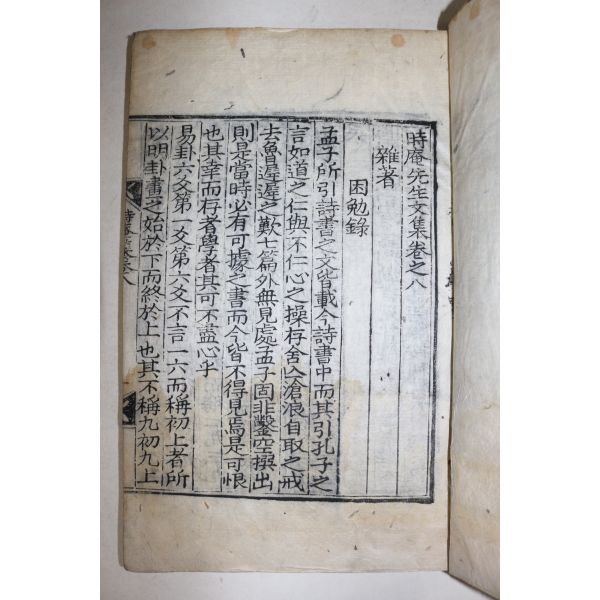 時庵先生文集卷之八
雜著
困勉錄
孟子所引詩書之文皆載今詩書中而其引孔子之
言如道之仁與不仁心之操存舍入滄浪自取之戒
去魯遲遲之歎七篇外無見處孟子固非鑿空撰出
則是當時必有可據之書而今皆不得見焉是可恨
也其幸而存者學者其可不盡心乎
易卦六爻第一爻第六爻不言一六而稱初上者所
以明卦畫之始於下而終於上也其不稱九初九上